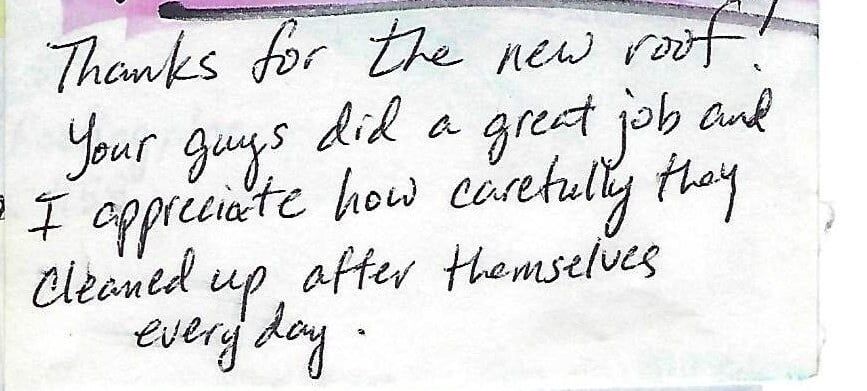 Thanks for the new roof!
Your guys did a great job and
I appreciate how carefully they
cleaned up after themselves
every day.